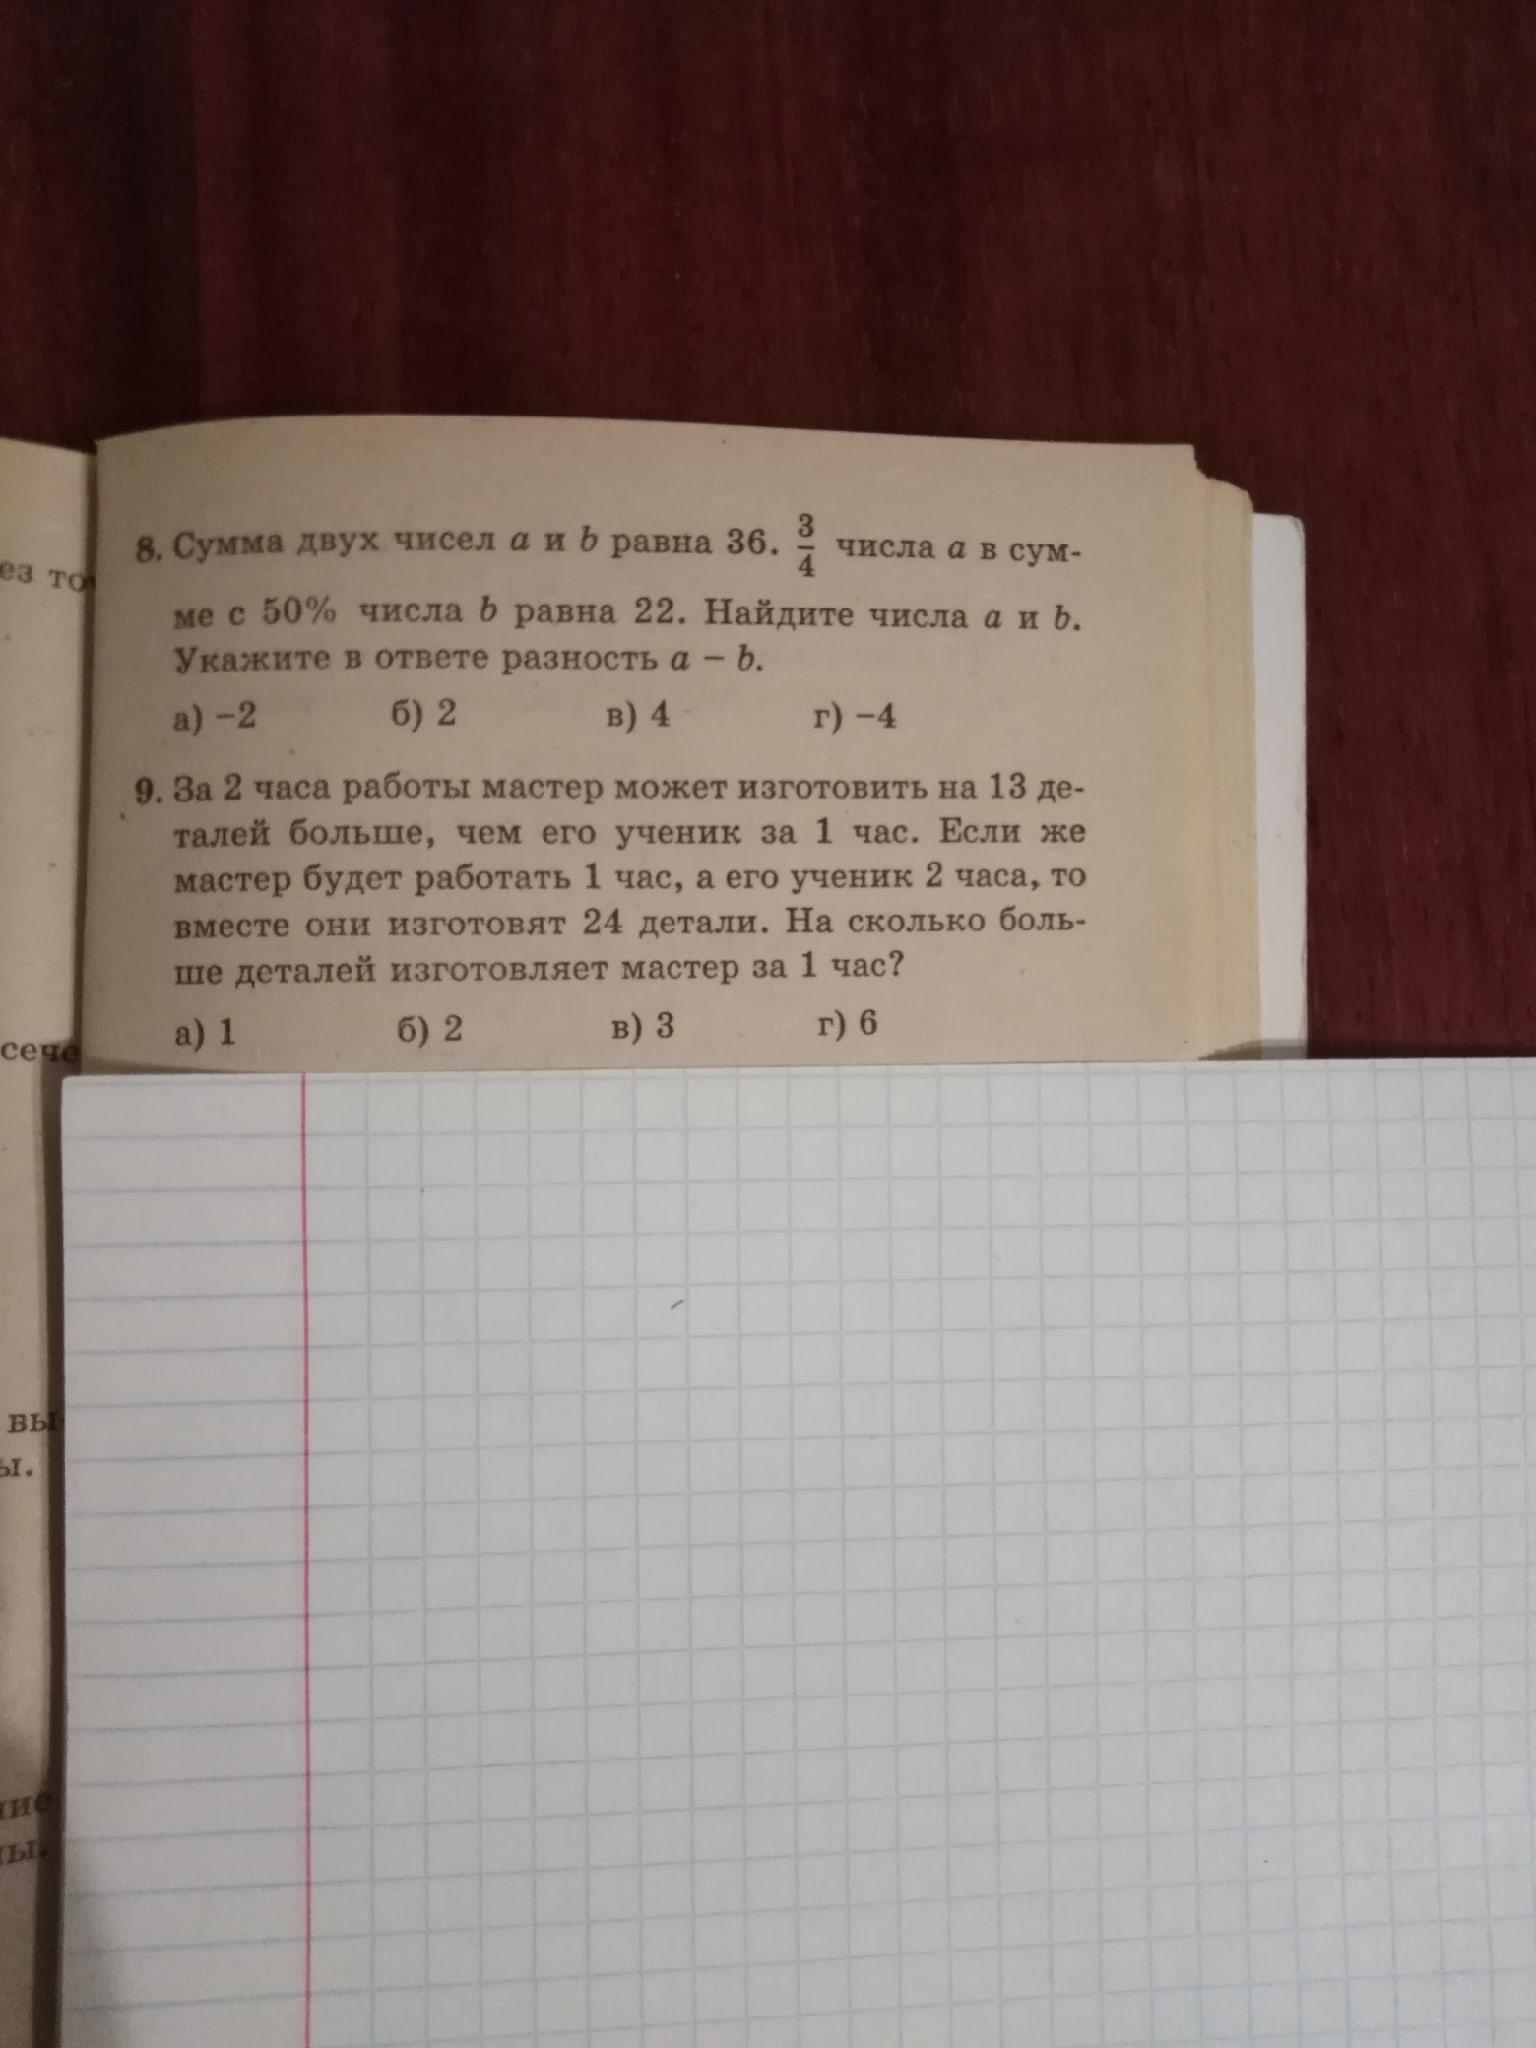 8. Сумма двух чисел a и b равна 36. 3/4 числа a в сум-
ме с 50% числа b равна 22. Найдите числа a и b.
Укажите в ответе разность a – b.
а) –2 б) 2 в) 4 г) –4
9. За 2 часа работы мастер может изготовить на 13 де-
талей больше, чем его ученик за 1 час. Если же
мастер будет работать 1 час, а его ученик 2 часа, то
вместе они изготовят 24 детали. На сколько боль-
ше деталей изготовляет мастер за 1 час?
а) 1 б) 2 в) 3 г) 6